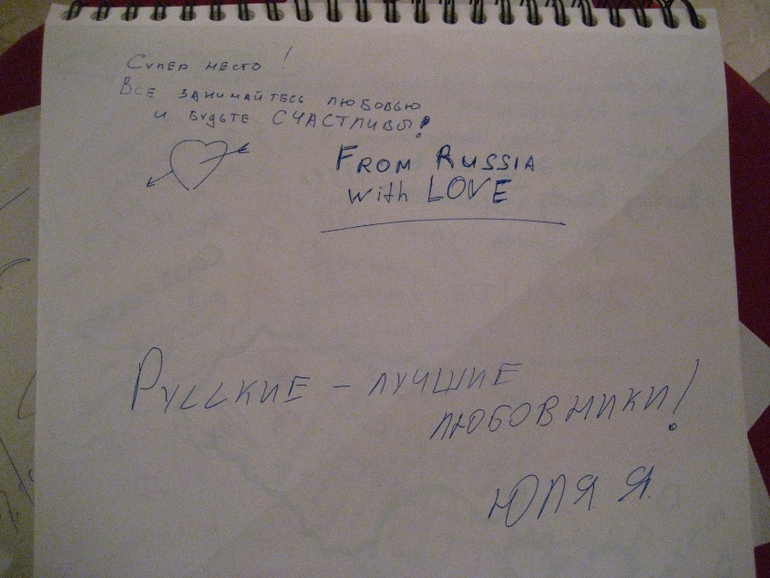 Супер место!
Все занимайтесь любовью
и будьте СЧАСТЛИВЫ!
FROM RUSSIA
with LOVE
Русские – лучшие
любовники!
Юля Я.